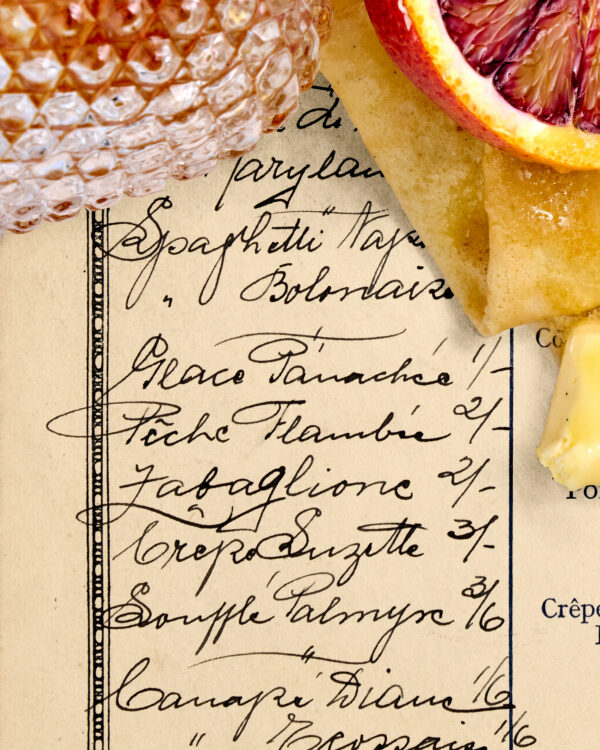 di
Spaghetti Nap
" Bolonaise
Glace Panachée 1/-
Pêche Flambée 2/-
Zabaglione 2/-
Crêpe Suzette 3/-
Soufflé Palmyre 3/6
Canapé Diane 1/6
" Ecossais 1/6
Crêpe